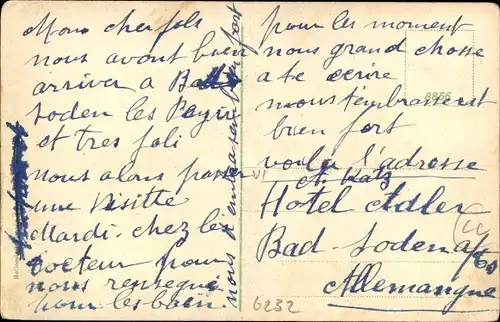 Mon cher fils
nous avont bien
arriver a Bad
Soden les Payii
et tres joli
nous alons passer
une Visitte
Mardi chez le
Docteur pour
nous renseigné
pour les bain
nous t'embrassent bien fort
pour les moment
nous grand chosse
a te ecrire
nous t'embrassent
bien fort
voila l'adresse
A. Katz
Hotel Adler
Bad. Soden a/
Allemangne
8866
VI
6232